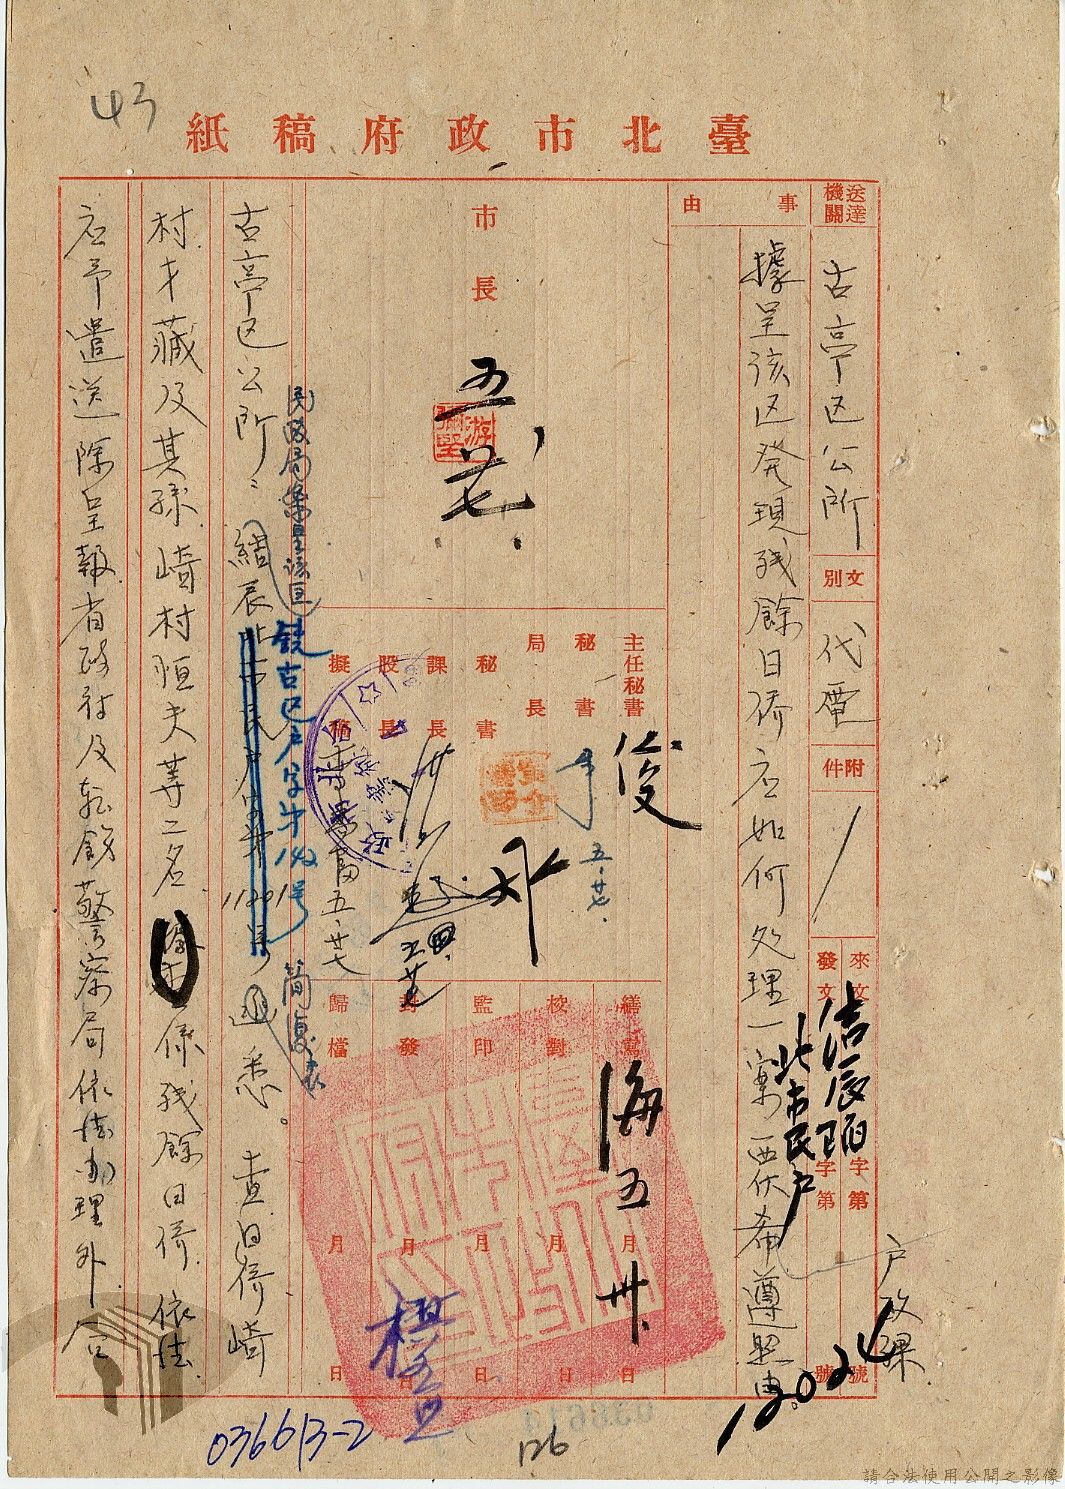 43
臺北市政府稿紙
送達機關
古亭区公所
文別
代電
附件
來文 字第 號
發文 字第 號
佶辰
北市民戶
12024
戶政課
事由
據呈該区発現残餘日僑应如何处理一案电伏希遵照由
市長
五 廿七
游彌堅
主任秘書
秘書
局長
秘書
課長
股長
擬稿
俊
五、廿七
五、廿七
繕寫
校對
監印
封發
歸檔
海五 卅
月 日
月 日
月 日
月 日
月 日
民政局案呈該区
古区戶字第142号
簡复表
古亭区公所：辰北市民戶字第11801号 悉。查日僑崎
村才藏及其孫崎村恒夫等二名係残餘日僑依法
应予遣送除呈報省政府及転飭警察局依法办理外合
036613-2
126
請合法使用公開之影像